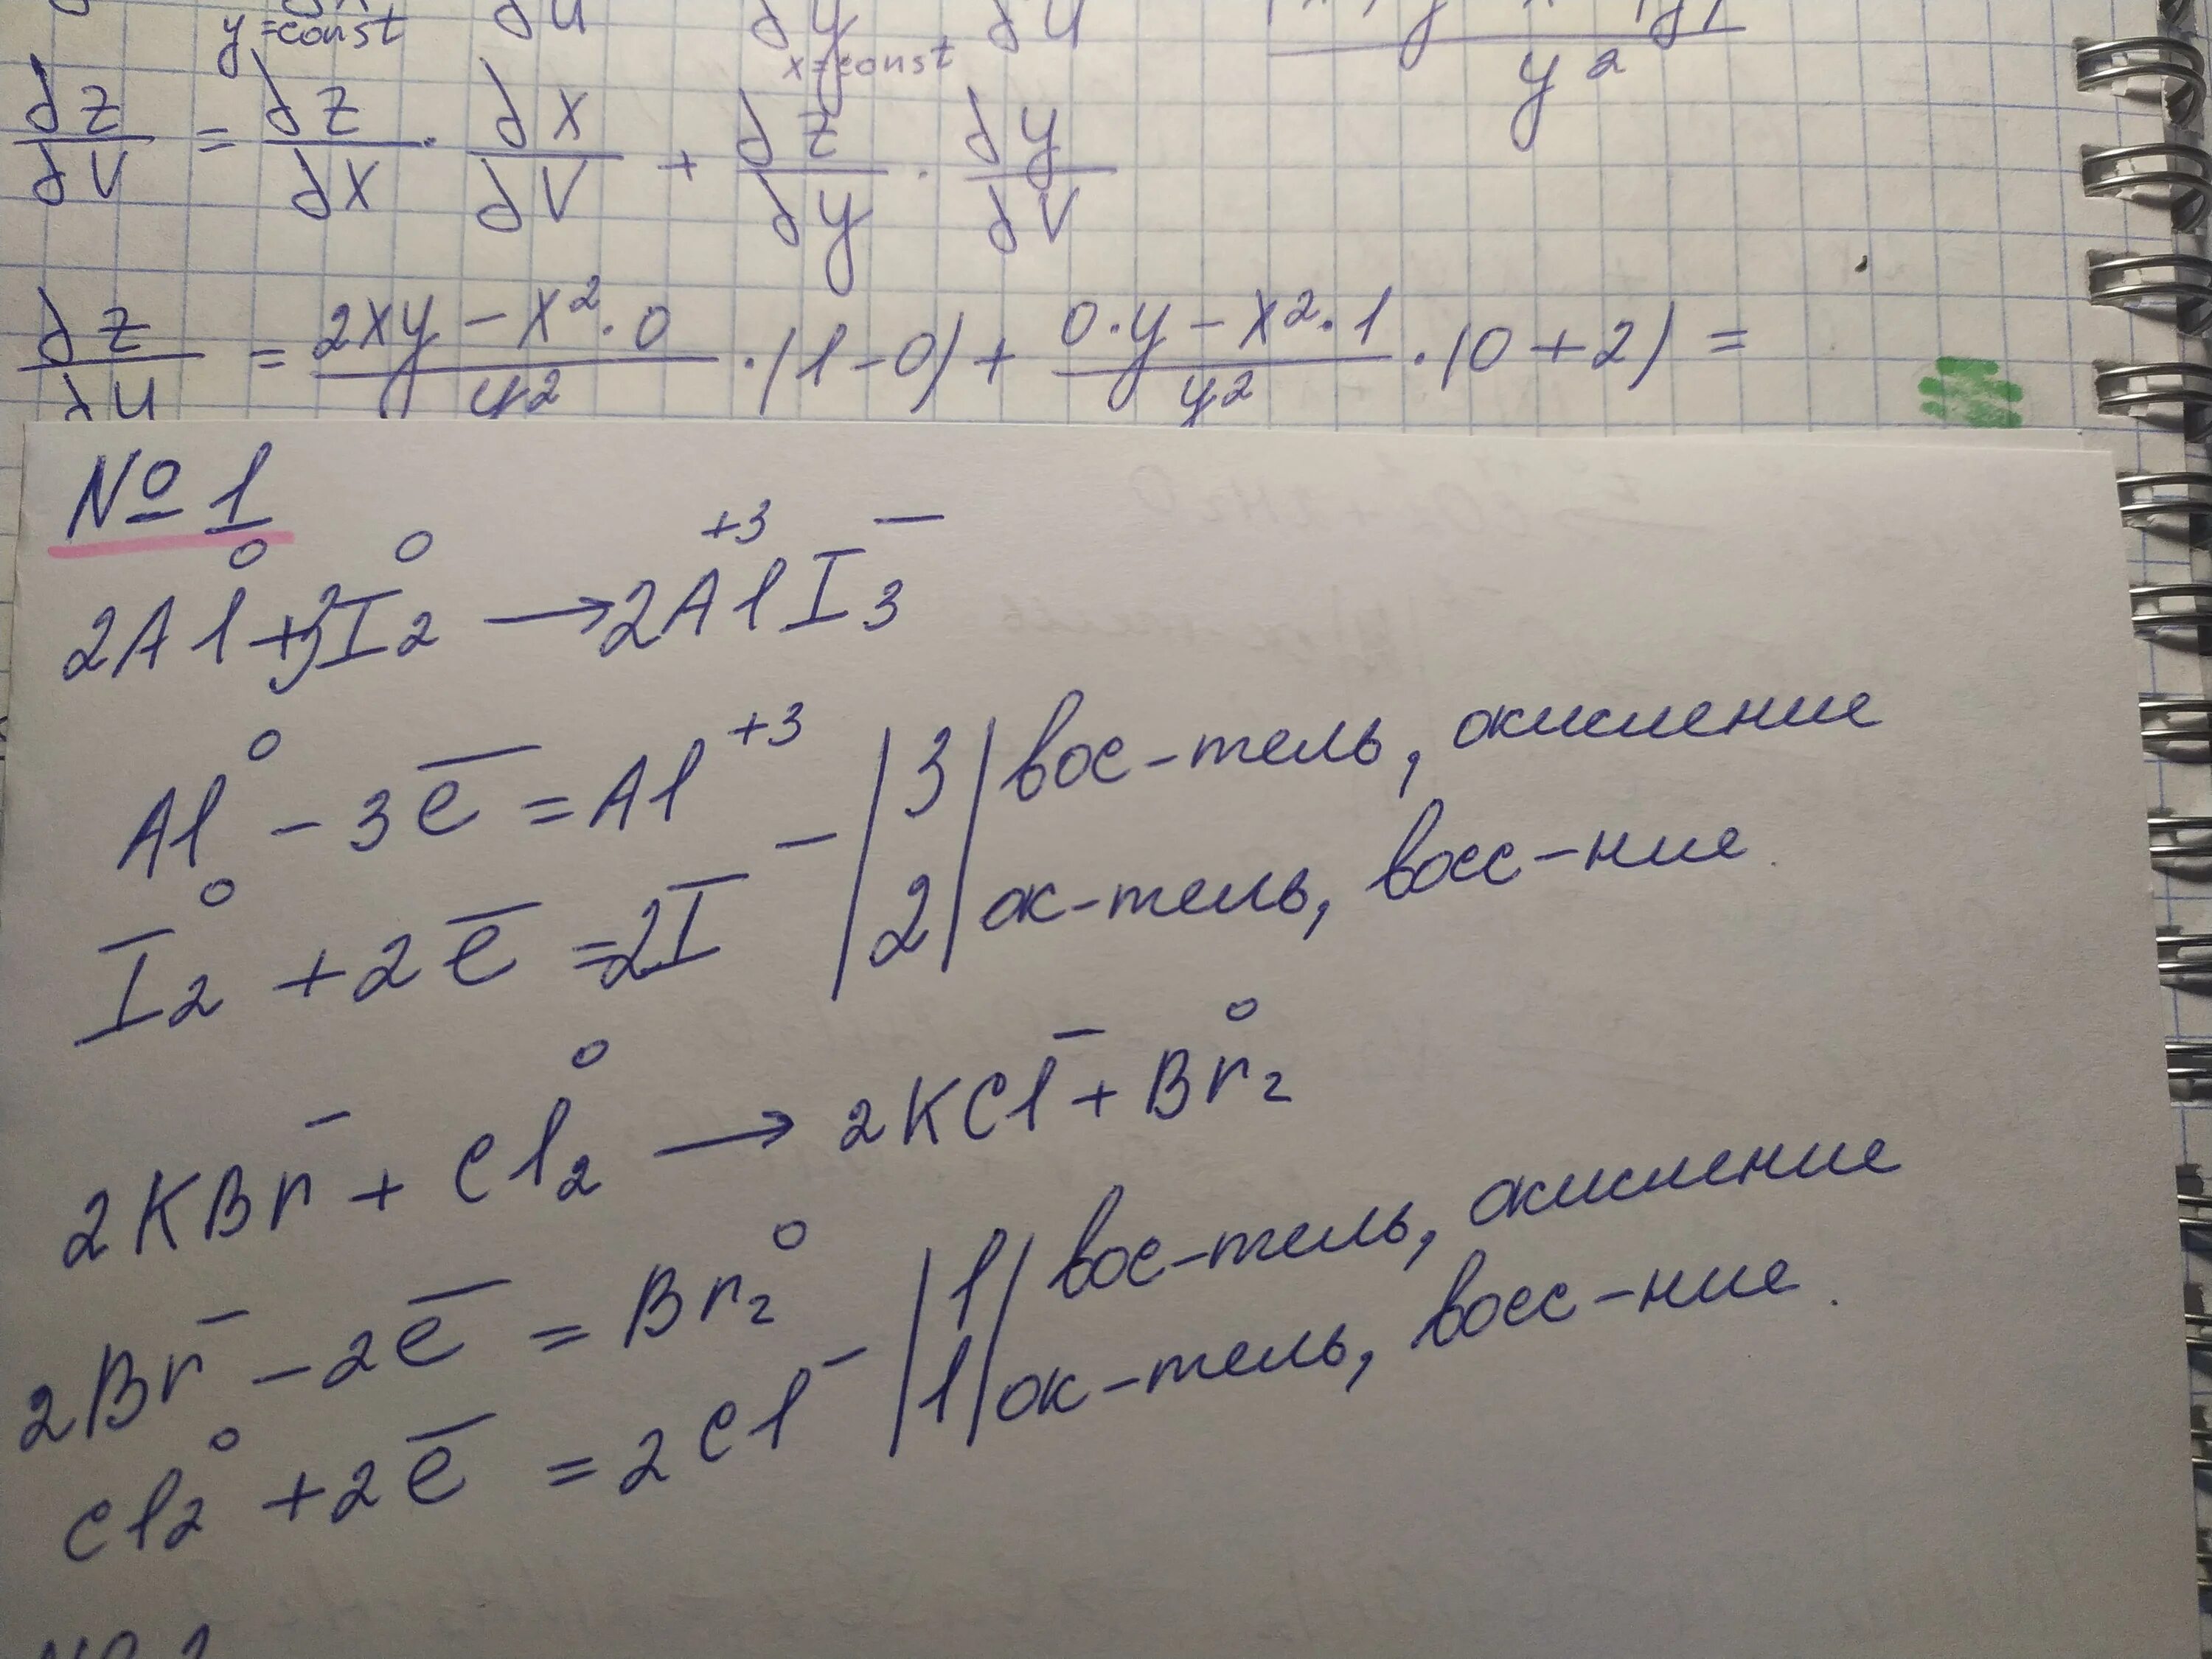 y=const ∂u ∂y x=const ∂u y²
∂z/∂v = ∂z/∂x · ∂x/∂v + ∂z/∂y · ∂y/∂v
∂z/∂u = (2xy − x²·0)/y² · (1−0) + (0·y − x²·1)/y² · (0+2) =
№1
2Al⁰ + 3I₂⁰ → 2Al⁺³I₃⁻
Al⁰ − 3e̅ = Al⁺³ | 3 | вос-тель, окисление
I₂⁰ + 2e̅ = 2I⁻ | 2 | ок-тель, восс-ние.
2KBr⁻ + Cl₂⁰ → 2KCl⁻ + Br₂⁰
2Br⁻ − 2e̅ = Br₂⁰ | 1 | вос-тель, окисление
Cl₂⁰ + 2e̅ = 2Cl⁻ | 1 | ок-тель, восс-ние.